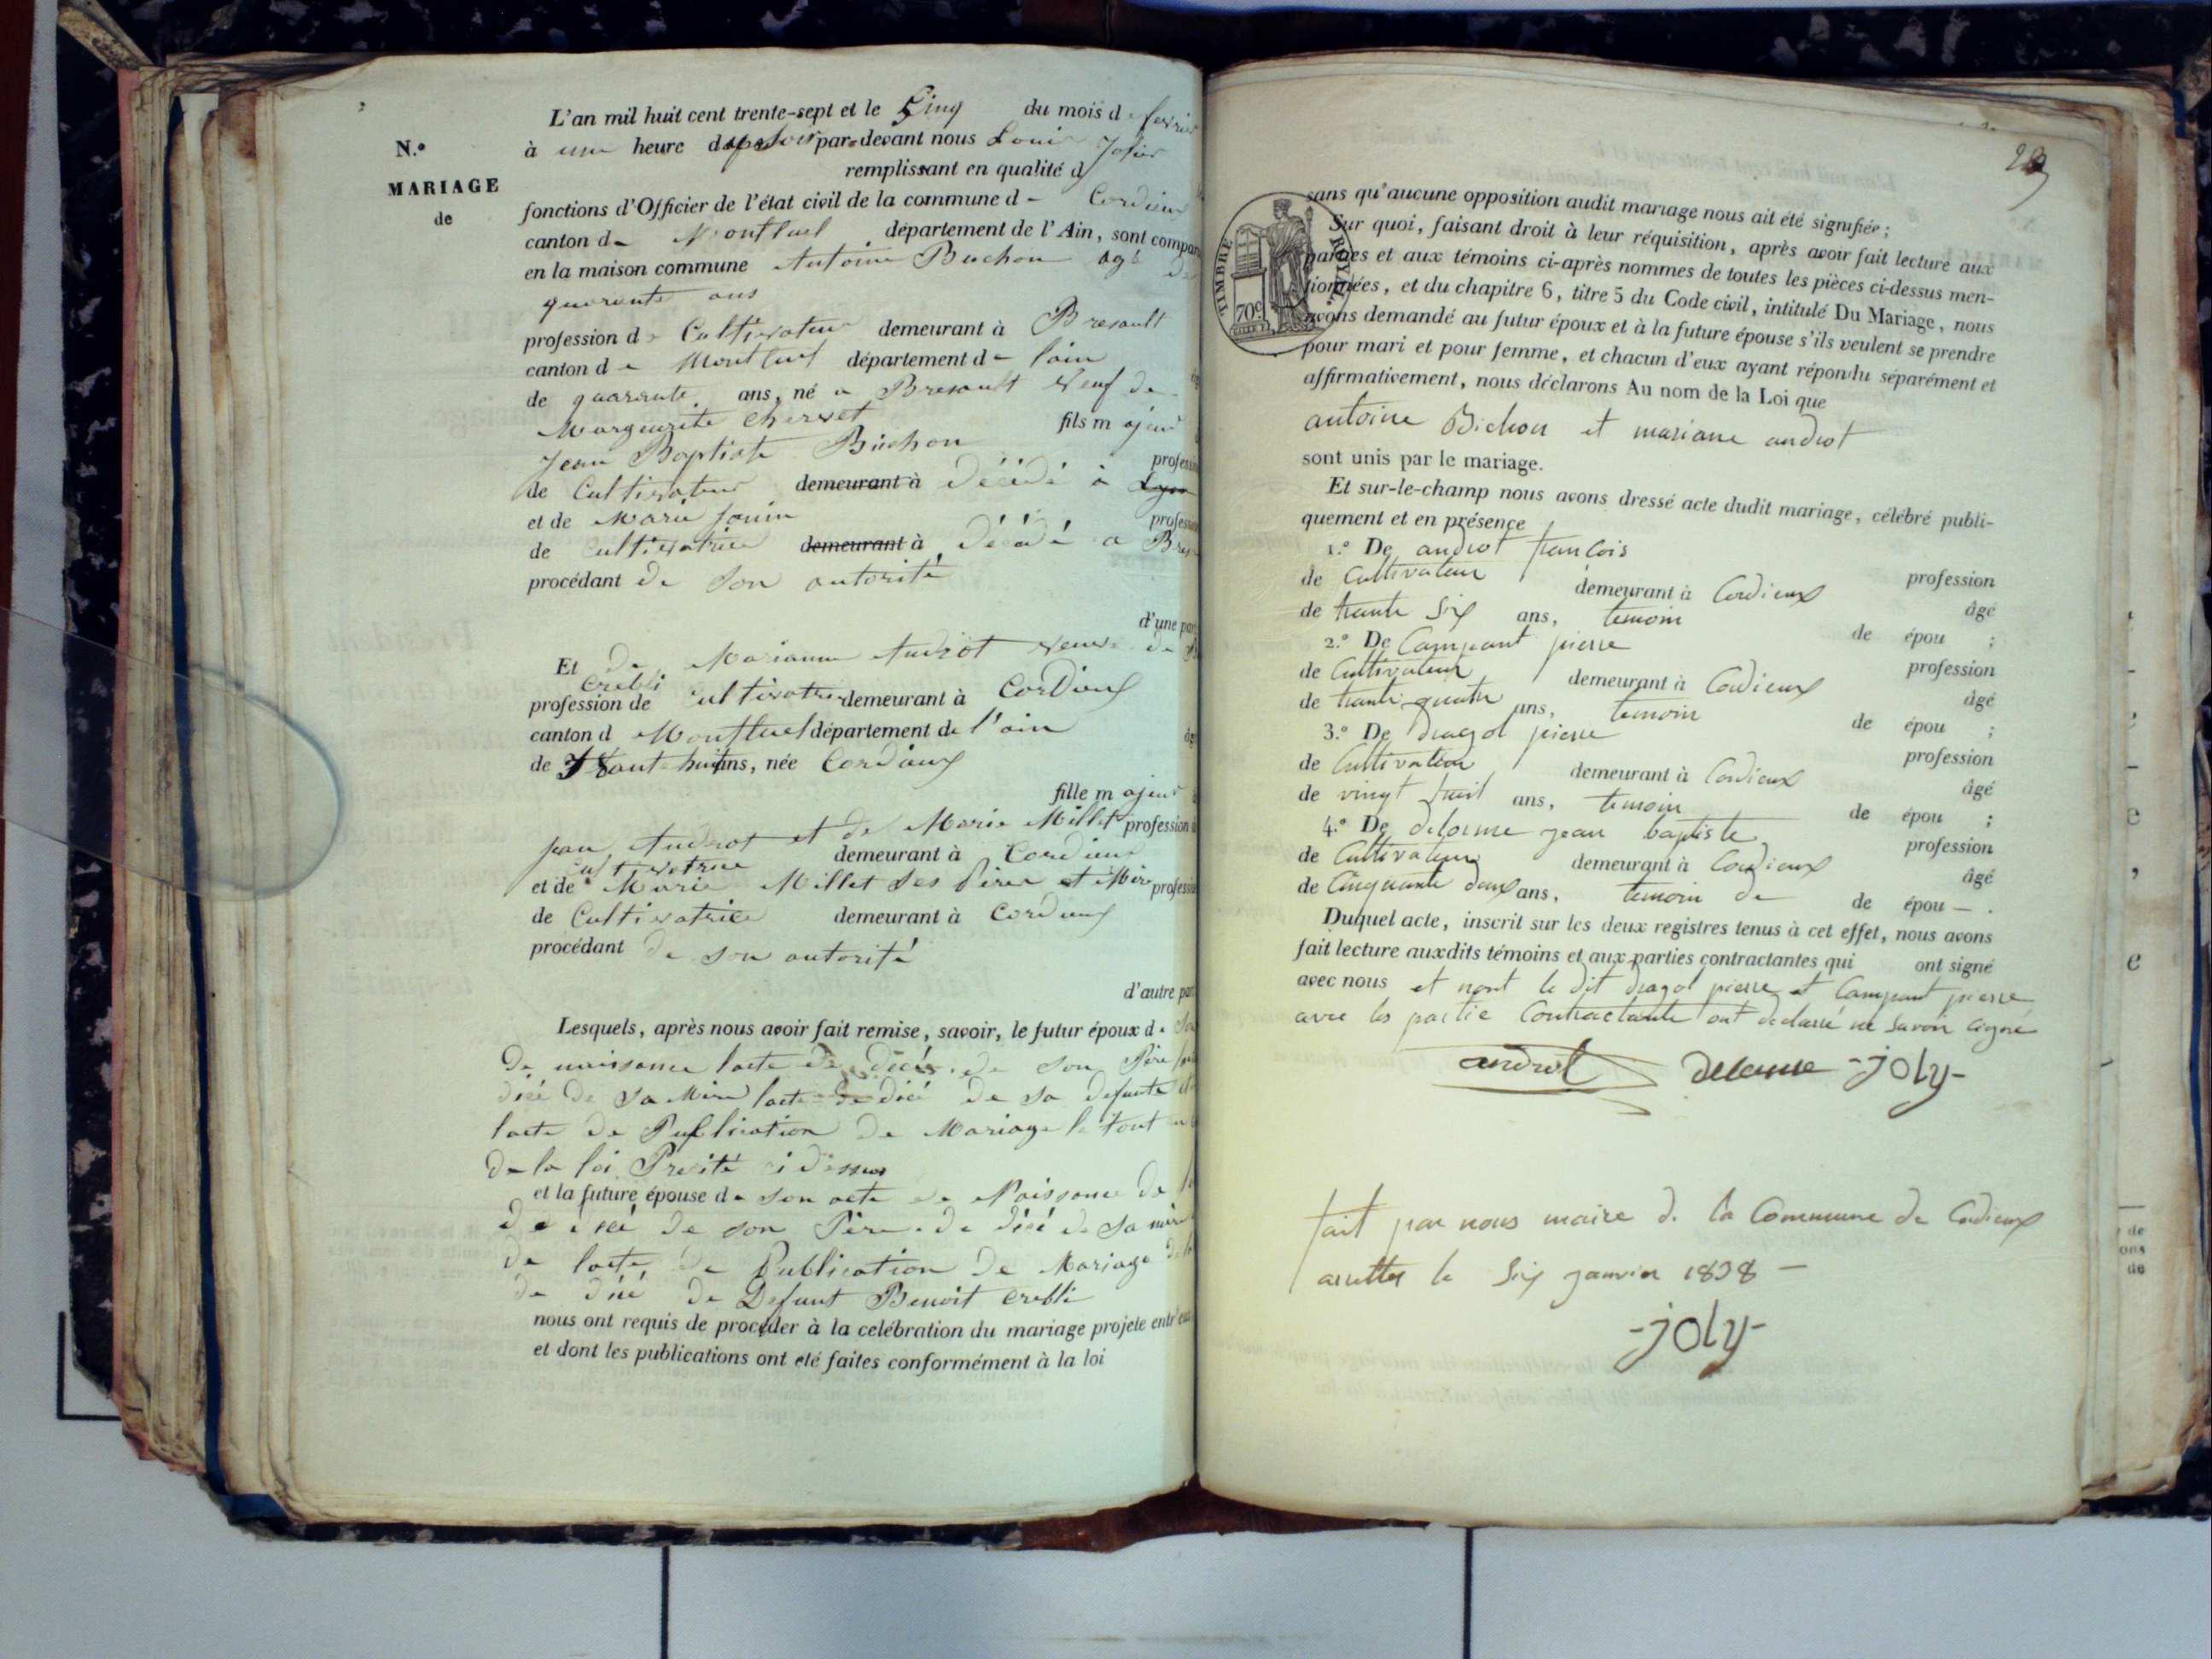 N.º
MARIAGE
de
L'an mil huit cent trente-sept et le Cinq du mois de fevrier
à une heure par-devant nous Loui
remplissant en qualité d
fonctions d'Officier de l'état civil de la commune de Cordieux
canton de Montluel département de l'Ain, sont compar
en la maison commune Antoine Buchon agé de
quarante ans
profession de Cultivateur demeurant à Bresault
canton de Montluel département de lain
de quarante ans, né a Bresault Veuf de
Marguerite Chervet fils majeur
Jean Baptiste Buchon professi
de Cultivateur demeurant à Décédé à Lyon
et de Marie Janin profess
de Cultivatrice demeurant à Décédé a Bres
procédant de Son autorité
d'une par
Et de Marianne Audrot veuve de
Crebli
profession de Cultivatrice demeurant à Cordieux
canton d Montluel département de l'ain
de trante huit ans, née Cordieux
fille majeur
jean Audrot et de Marie Millet profession
Cultivatrice demeurant à Cordieux
et de Marie Millet Ses Père et Mère professi
de Cultivatrice demeurant à Cordieux
procédant de Son autorité
d'autre par
Lesquels, après nous avoir fait remise, savoir, le futur époux de
De naissance lacte de décès de Son Père
décé de Sa Mère lacte de décé de Sa defunte
lacte de Publication de Mariage le tout
De la loi Précité ci dessus
et la future épouse de Son acte de Naissance de
de décé de Son Père de décé de Sa mère
De lacte de Publication de Mariage
de décé de Defunt Benoit Crebli
nous ont requis de procéder à la célébration du mariage projeté entr'eux
et dont les publications ont été faites conformément à la loi
29
TIMBRE ROYAL
70c
sans qu'aucune opposition audit mariage nous ait été signifiée;
Sur quoi, faisant droit à leur réquisition, après avoir fait lecture aux
parties et aux témoins ci-après nommes de toutes les pièces ci-dessus men-
tionnées, et du chapitre 6, titre 5 du Code civil, intitulé Du Mariage, nous
avons demandé au futur époux et à la future épouse s'ils veulent se prendre
pour mari et pour femme, et chacun d'eux ayant répondu séparément et
affirmativement, nous déclarons Au nom de la Loi que
antoine Bichon et mariane androt
sont unis par le mariage.
Et sur-le-champ nous avons dressé acte dudit mariage, célébré publi-
quement et en présence
1.º De androt francois profession
de Cultivateur demeurant à Cordieux âgé
de trante Six ans, temoin de épou ;
2.º De Campant pierre profession
de Cultivateur demeurant à Cordieux âgé
de trante quatre ans, temoin de épou ;
3.º De dragot pierre profession
de Cultivateur demeurant à Cordieux âgé
de vingt huit ans, temoin de épou ;
4.º De delorme jean baptiste profession
de Cultivateur demeurant à Cordieux âgé
de Cinquante deux ans, temoin de de épou — .
Duquel acte, inscrit sur les deux registres tenus à cet effet, nous avons
fait lecture auxdits témoins et aux parties contractantes qui ont signé
avec nous et nont le dit dragot pierre et Campant pierre
avec les partie Contractante ont declarré ne Savoir Signé
androt delorme -joly-
fait par nous maire de la Commune de Cordieux
arretter le Six janvier 1838 —
-joly-